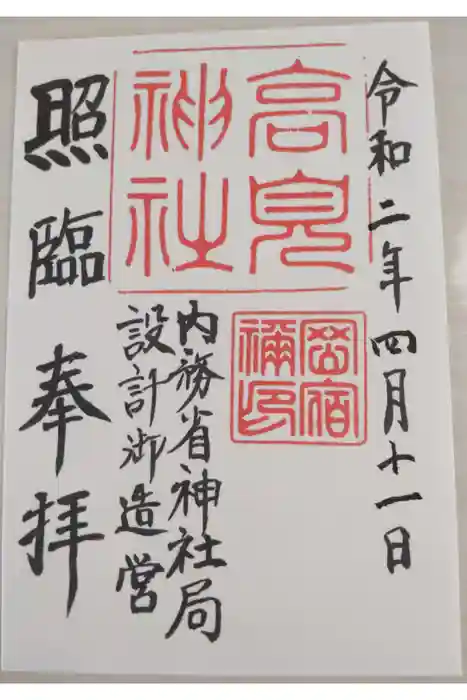 令和二年四月十一日
高見
神社
岡宿
禰印
内務省神社局
設計御造営
照臨奉拝